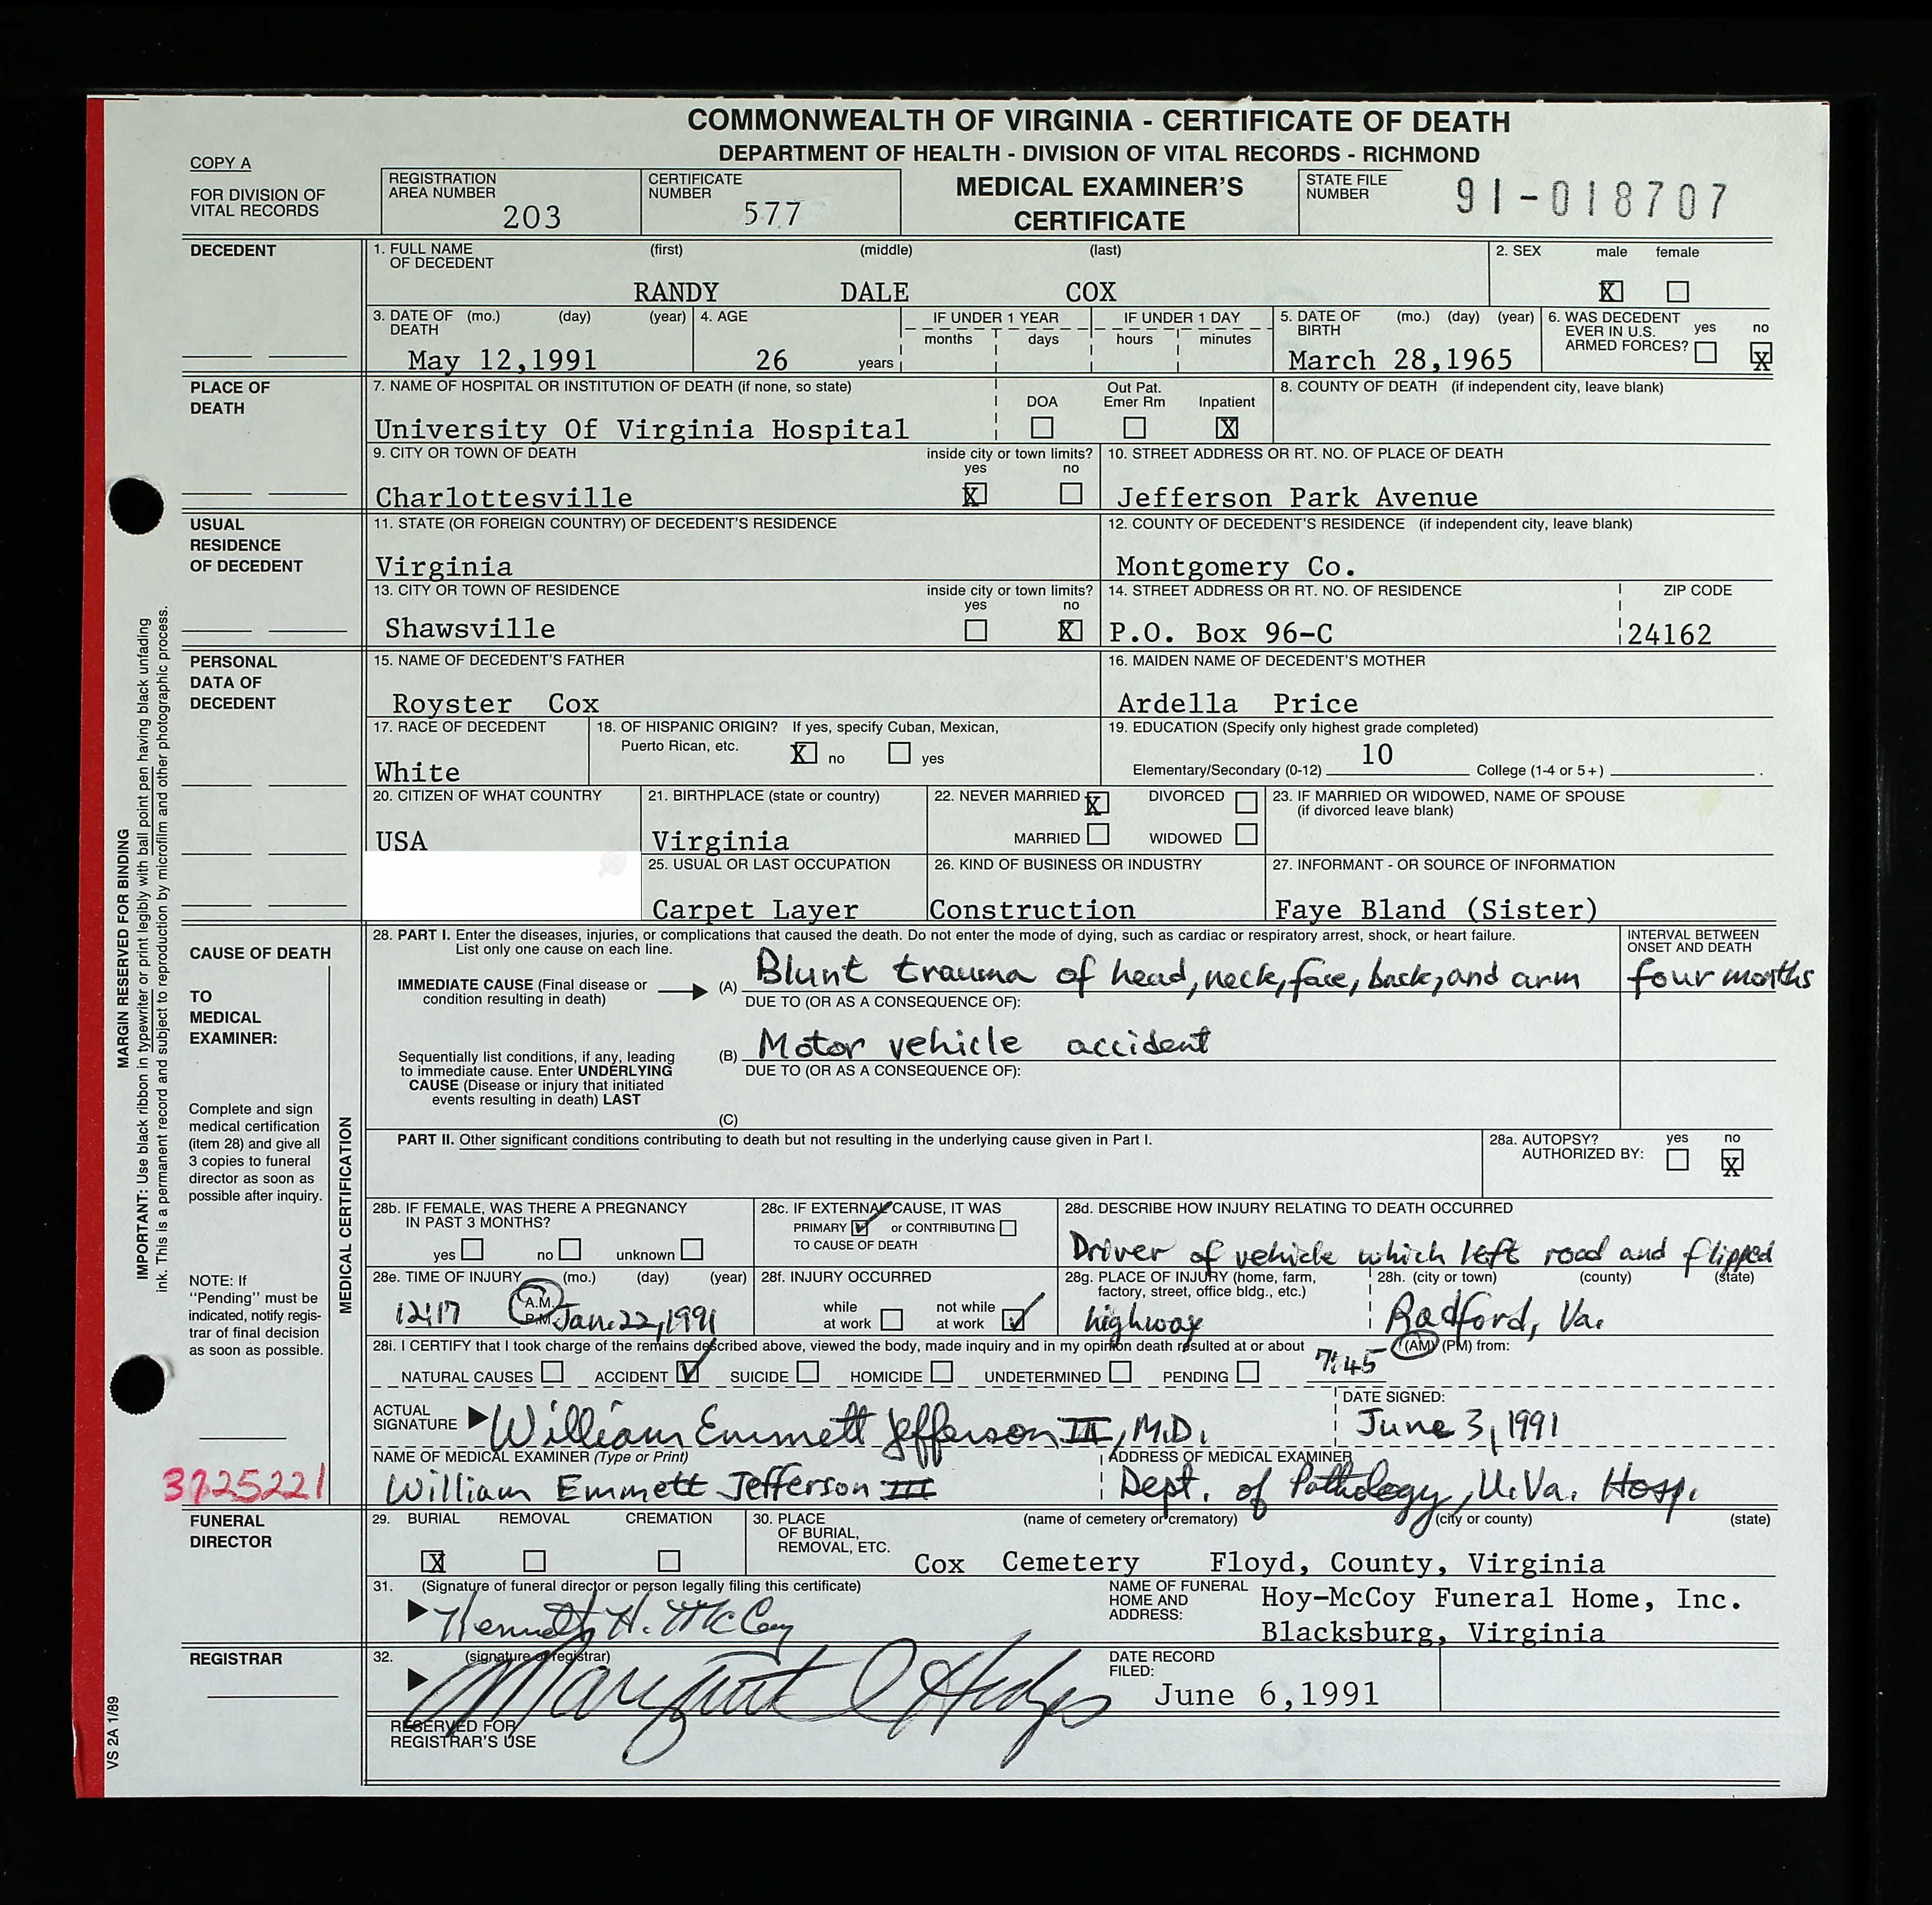 COMMONWEALTH OF VIRGINIA - CERTIFICATE OF DEATH
DEPARTMENT OF HEALTH - DIVISION OF VITAL RECORDS - RICHMOND
COPY A
FOR DIVISION OF VITAL RECORDS
REGISTRATION AREA NUMBER 203
CERTIFICATE NUMBER 577
MEDICAL EXAMINER'S CERTIFICATE
STATE FILE NUMBER 91-018707
DECEDENT
1. FULL NAME OF DECEDENT (first) (middle) (last)
RANDY DALE COX
2. SEX male female
X
3. DATE OF DEATH (mo.) (day) (year)
May 12,1991
4. AGE
26 years
IF UNDER 1 YEAR
months days
IF UNDER 1 DAY
hours minutes
5. DATE OF BIRTH (mo.) (day) (year)
March 28,1965
6. WAS DECEDENT EVER IN U.S. ARMED FORCES? yes no
X
PLACE OF DEATH
7. NAME OF HOSPITAL OR INSTITUTION OF DEATH (if none, so state)
University Of Virginia Hospital
DOA Out Pat. Emer Rm Inpatient
X
8. COUNTY OF DEATH (if independent city, leave blank)
9. CITY OR TOWN OF DEATH
Charlottesville
inside city or town limits?
yes no
X
10. STREET ADDRESS OR RT. NO. OF PLACE OF DEATH
Jefferson Park Avenue
USUAL RESIDENCE OF DECEDENT
11. STATE (OR FOREIGN COUNTRY) OF DECEDENT'S RESIDENCE
Virginia
12. COUNTY OF DECEDENT'S RESIDENCE (if independent city, leave blank)
Montgomery Co.
13. CITY OR TOWN OF RESIDENCE
Shawsville
inside city or town limits?
yes no
X
14. STREET ADDRESS OR RT. NO. OF RESIDENCE
P.O. Box 96-C
ZIP CODE
24162
PERSONAL DATA OF DECEDENT
15. NAME OF DECEDENT'S FATHER
Royster Cox
16. MAIDEN NAME OF DECEDENT'S MOTHER
Ardella Price
17. RACE OF DECEDENT
White
18. OF HISPANIC ORIGIN? If yes, specify Cuban, Mexican, Puerto Rican, etc.
X no yes
19. EDUCATION (Specify only highest grade completed)
Elementary/Secondary (0-12) 10 College (1-4 or 5+)
20. CITIZEN OF WHAT COUNTRY
USA
21. BIRTHPLACE (state or country)
Virginia
22. NEVER MARRIED X DIVORCED
MARRIED WIDOWED
23. IF MARRIED OR WIDOWED, NAME OF SPOUSE
(if divorced leave blank)
25. USUAL OR LAST OCCUPATION
Carpet Layer
26. KIND OF BUSINESS OR INDUSTRY
Construction
27. INFORMANT - OR SOURCE OF INFORMATION
Faye Bland (Sister)
CAUSE OF DEATH
TO MEDICAL EXAMINER:
Complete and sign medical certification (item 28) and give all 3 copies to funeral director as soon as possible after inquiry.
NOTE: If "Pending" must be indicated, notify registrar of final decision as soon as possible.
MEDICAL CERTIFICATION
28. PART I. Enter the diseases, injuries, or complications that caused the death. Do not enter the mode of dying, such as cardiac or respiratory arrest, shock, or heart failure.
List only one cause on each line.
INTERVAL BETWEEN ONSET AND DEATH
IMMEDIATE CAUSE (Final disease or condition resulting in death)
(A) Blunt trauma of head, neck, face, back, and arm four months
DUE TO (OR AS A CONSEQUENCE OF):
Sequentially list conditions, if any, leading to immediate cause. Enter UNDERLYING CAUSE (Disease or injury that initiated events resulting in death) LAST
(B) Motor vehicle accident
DUE TO (OR AS A CONSEQUENCE OF):
(C)
PART II. Other significant conditions contributing to death but not resulting in the underlying cause given in Part I.
28a. AUTOPSY? AUTHORIZED BY: yes no
X
28b. IF FEMALE, WAS THERE A PREGNANCY IN PAST 3 MONTHS?
yes no unknown
28c. IF EXTERNAL CAUSE, IT WAS
PRIMARY ✓ or CONTRIBUTING
TO CAUSE OF DEATH
28d. DESCRIBE HOW INJURY RELATING TO DEATH OCCURRED
Driver of vehicle which left road and flipped
28e. TIME OF INJURY (mo.) (day) (year)
12:17 A.M. P.M. Jan. 22, 1991
28f. INJURY OCCURRED
while at work not while at work ✓
28g. PLACE OF INJURY (home, farm, factory, street, office bldg., etc.)
highway
28h. (city or town) (county) (state)
Radford, Va.
28i. I CERTIFY that I took charge of the remains described above, viewed the body, made inquiry and in my opinion death resulted at or about 7:45 (AM) (PM) from:
NATURAL CAUSES ACCIDENT ✓ SUICIDE HOMICIDE UNDETERMINED PENDING
ACTUAL SIGNATURE William Emmett Jefferson III, M.D.
DATE SIGNED:
June 3, 1991
NAME OF MEDICAL EXAMINER (Type or Print)
William Emmett Jefferson III
ADDRESS OF MEDICAL EXAMINER
Dept. of Pathology, U.Va. Hosp.
3725221
FUNERAL DIRECTOR
29. BURIAL REMOVAL CREMATION
X
30. PLACE OF BURIAL, REMOVAL, ETC.
(name of cemetery or crematory) (city or county) (state)
Cox Cemetery Floyd, County, Virginia
31. (Signature of funeral director or person legally filing this certificate)
Kenneth H. McCoy
NAME OF FUNERAL HOME AND ADDRESS:
Hoy-McCoy Funeral Home, Inc.
Blacksburg, Virginia
REGISTRAR
32. (signature of registrar)
DATE RECORD FILED:
June 6,1991
RESERVED FOR REGISTRAR'S USE
MARGIN RESERVED FOR BINDING
IMPORTANT: Use black ribbon in typewriter or print legibly with ball point pen having black unfading
ink. This is a permanent record and subject to reproduction by microfilm and other photographic process.
VS 2A 1/89